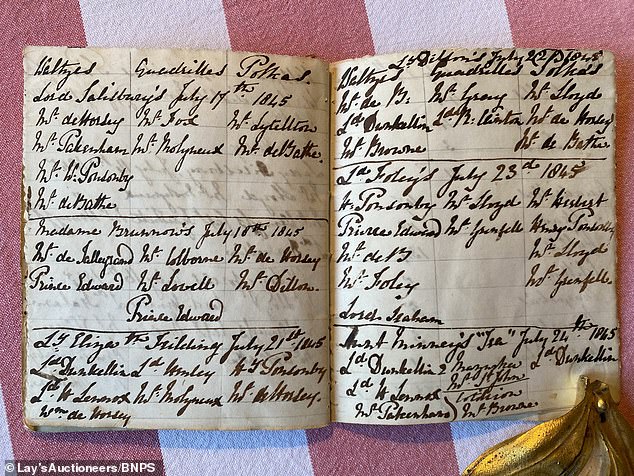 Waltzes Quadrilles Polkas.
Lord Salisbury's July 17th 1845
Mr. de Horsey Mr. Lytelton
Mr. Pakenham Mr. Molyneux Mr. de Bathe.
Mr. W. Ponsonby
Mr. de Bathe
Madame Brunnow's July 18th 1845
Mr. de Talleyrand Mr. Colborne Mr. de Horsey
Prince Edward Mr. Lovell Mr. Dillon
Prince Edward
Ly. Elizath. Feilding July 21st 1845
Ld. Dunkellin Ld. Henley Hy. Ponsonby
Ld. H Lennox Mr. Molyneux Mr. de Horsey.
Wm de Horsey
Ly Dillon's July 22d 1845
Waltzes Quadrilles Polkas
Mr. de B. Mr. Gray Mr. Lloyd
Ld Dunkellin Ld R. Clinton Mr. de Horsey
Mr. Browne Mr. de Bathe
Ld Foley's July 23d 1845
H Ponsonby Mr. Lloyd
Prince Edward Mr. Grenfell Henry Ponsonby
Mr. de B Mr. Lloyd
Mr. Foley Mr. Grenfell
Lord Graham
Aunt Minney's "Tea" July 24th 1845
Ld Dunkellin 2 Ld Dunkellin
Ld H Lennox
Mr. Pakenham Mr. Browne
© Lay'sAuctioneers/BNPS